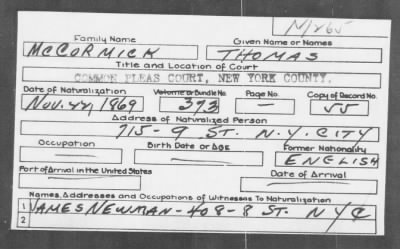 Family Name Given Name or Names
McCORMICK THOMAS
Title and Location of Court
COMMON PLEAS COURT, NEW YORK COUNTY.
Date of Naturalization Volume or Bundle No. Page No. Copy of Record No.
NOV. 22, 1869 373 — 55
Address of Naturalized Person
715-9 ST. N.Y. CITY
Occupation Birth Date or Age Former Nationality
ENGLISH
Port of Arrival in the United States Date of Arrival
Names, Addresses and Occupations of Witnesses To Naturalization
1 JAMES NEWMAN-408-8 ST. NYC
2